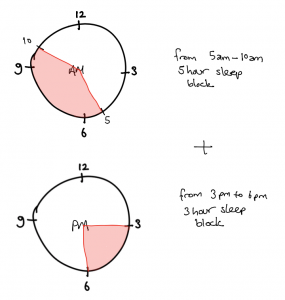 12
10
9
AM
3
5
6
from 5am-10am
5 hour sleep
block
+
12
9
PM
3
6
from 3pm to 6pm
3 hour sleep
block